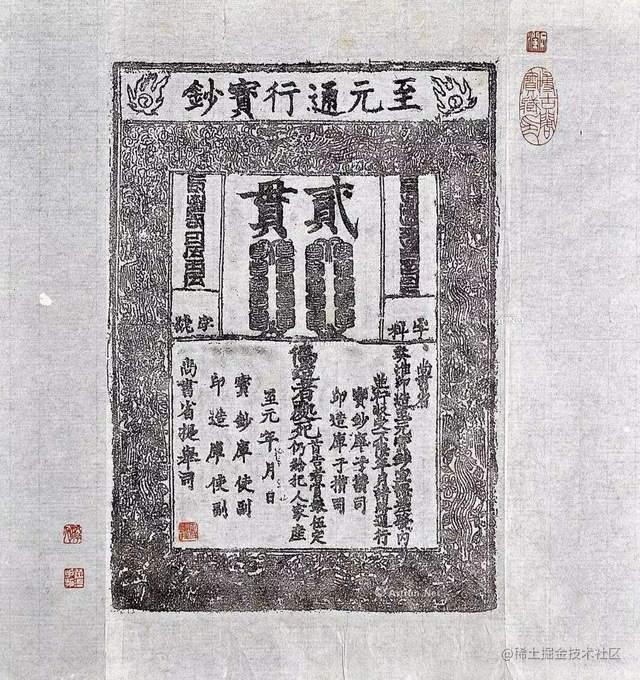 至元通行寶鈔
貳貫
字料
字號
尚書省
奏准印造至元寶鈔宣課差役內
並行收受不限年月諸路通行
寶鈔庫子攢司
印造庫子攢司
偽造者處死
首告者賞銀伍定
仍給犯人家産
至元 年 月 日
寶鈔庫使副
印造庫使副
尚書省提舉司
@稀土掘金技术社区